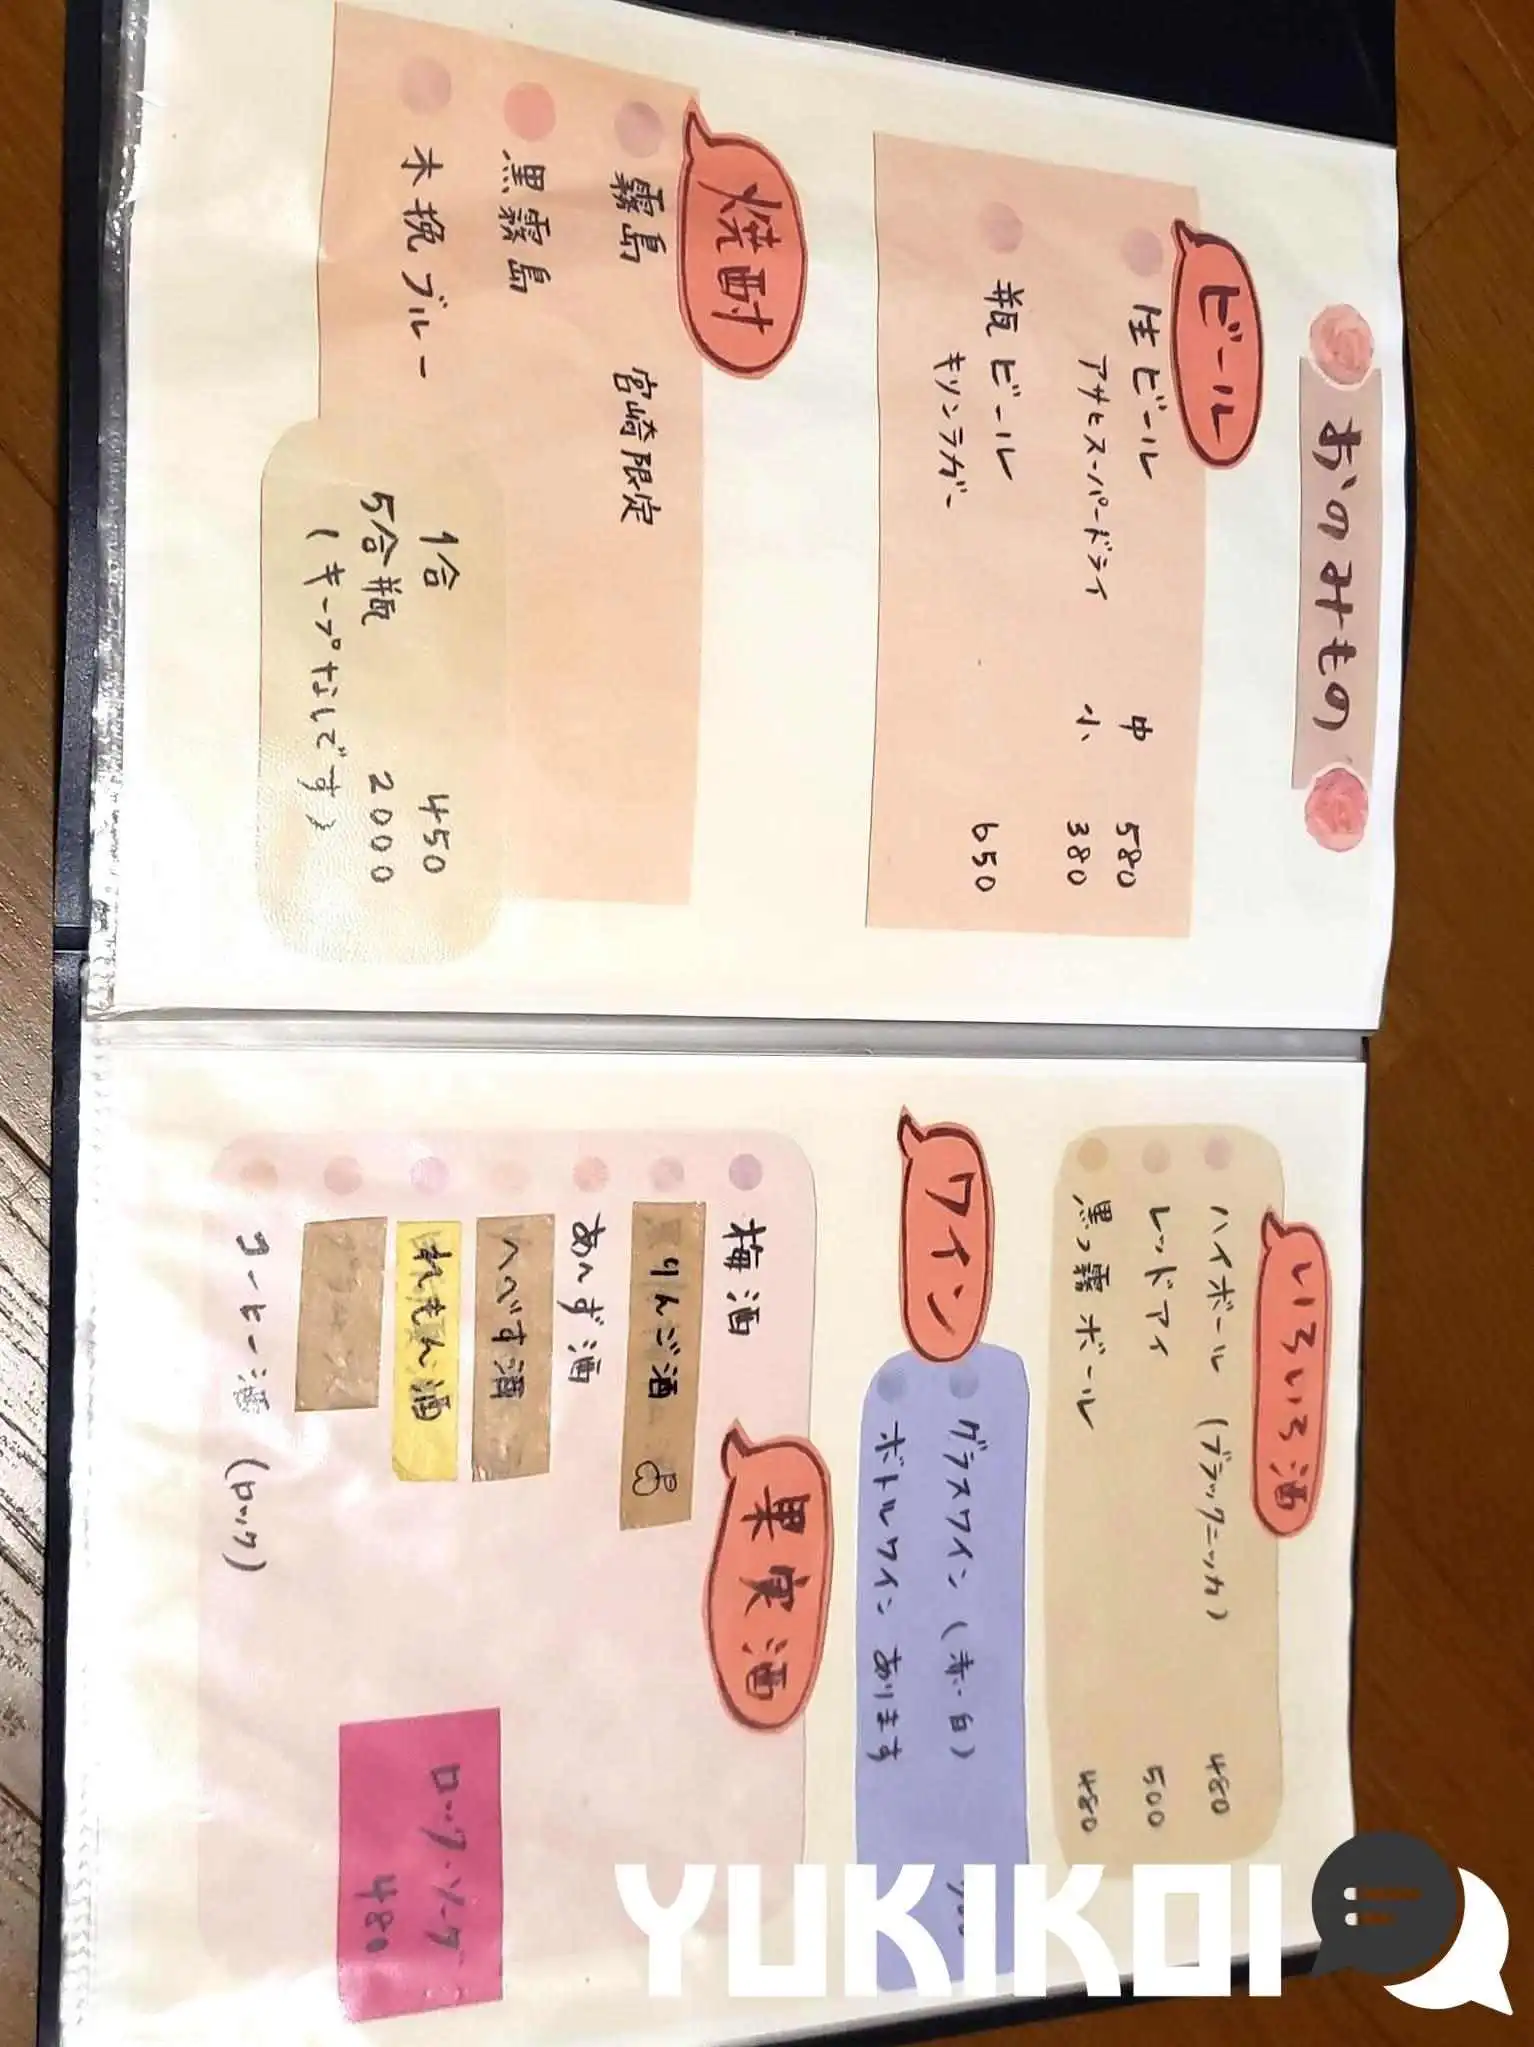 おのみもの
ビール
生ビール 中 580
アサヒスーパードライ 小 380
瓶ビール 650
キリンラガー
焼酎
霧島 宮崎限定
黒霧島
木挽ブルー
1合 450
5合瓶 2000
(キープなしです)
いろいろ酒
ハイボール (ブラックニッカ) 480
レッドアイ 500
黒っ霧ボール 480
ワイン
グラスワイン (赤・白)
ボトルワイン あります
果実酒
梅酒
りんご酒
あんず酒
へべす酒
れもん酒
コーヒー酒 (ロック)
ロック・ソーダ
480
YUKIKOI